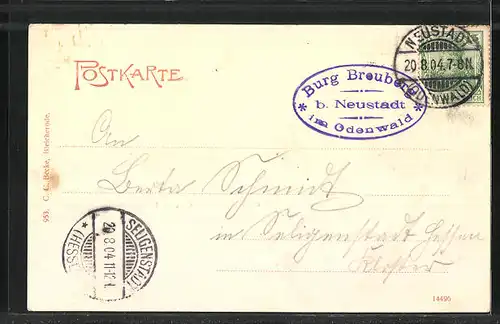 NEUSTADT
20.8.04.7-8N.
(ODENWALD)
POSTKARTE
Burg Breuberg
b. Neustadt
im Odenwald
An
Berta Schmidt
in Seligenstadt Hessen
Kloster
SELIGENSTADT
20.8.04.11-12N.
* (HESSEN) *
953. C. C. Becke, Bleicherode.
14495